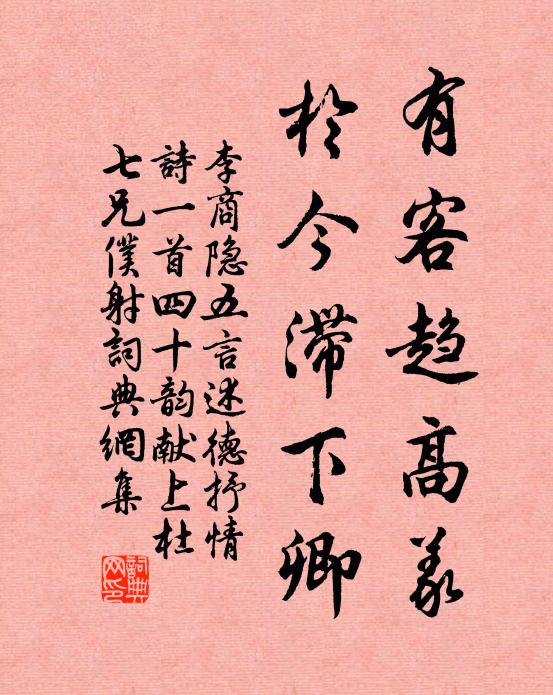 有客趋高義
於今滞下卿
李商隐五言述德抒情
詩一首四十韵献上杜
七兄僕射詞典網集
詞典网印